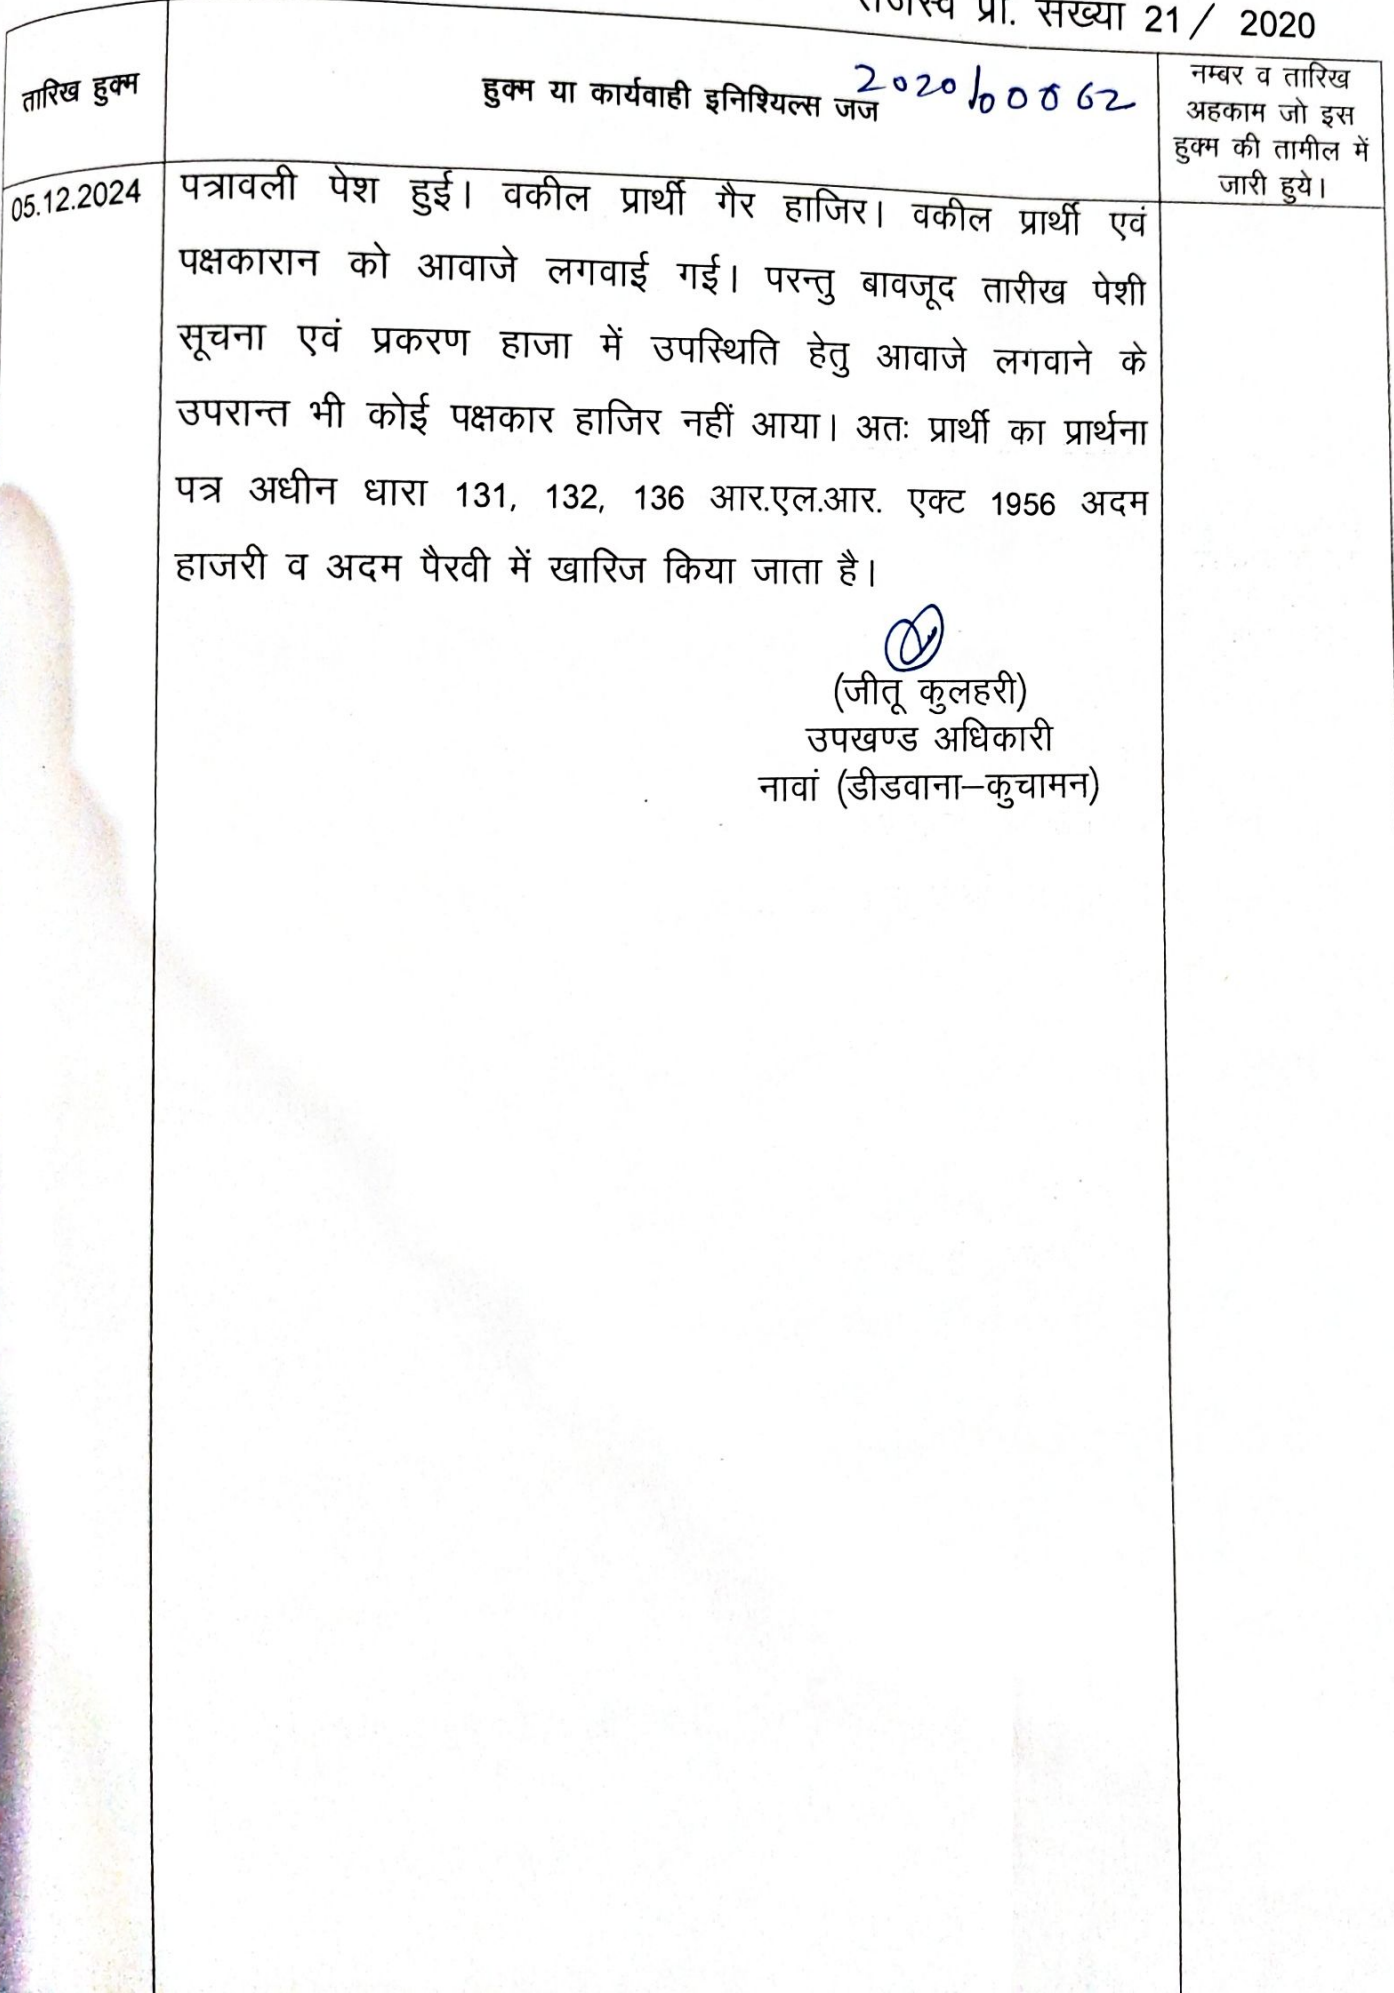 राजस्व प्रा. संख्या 21/ 2020
तारिख हुक्म
हुक्म या कार्यवाही इनिश्यिल्स जज
2020/00062
नम्बर व तारिख
अहकाम जो इस
हुक्म की तामील में
जारी हुये।
05.12.2024
पत्रावली पेश हुई। वकील प्रार्थी गैर हाजिर। वकील प्रार्थी एवं
पक्षकारान को आवाजे लगवाई गई। परन्तु बावजूद तारीख पेशी
सूचना एवं प्रकरण हाजा में उपस्थिति हेतु आवाजे लगवाने के
उपरान्त भी कोई पक्षकार हाजिर नहीं आया। अतः प्रार्थी का प्रार्थना
पत्र अधीन धारा 131, 132, 136 आर.एल.आर. एक्ट 1956 अदम
हाजरी व अदम पैरवी में खारिज किया जाता है।
(जीतू कुलहरी)
उपखण्ड अधिकारी
नावां (डीडवाना–कुचामन)